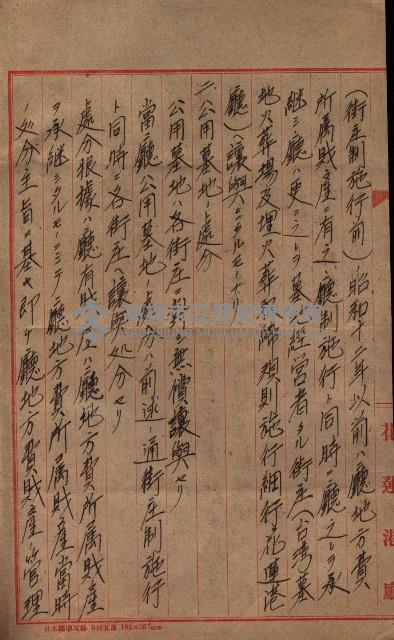 (街庄制施行前)昭和十二年以前ハ廳地方費
所属財產ニ有之廳制施行ト同時ニ廳之レヲ承
継ミ廳ハ更ニ之レヲ墓経営者タル街庄(台湾墓
地火葬場及埋火葬取締規則施行細行花蓮港
廳)ニ讓與ミタルモノナリ
二、公用墓地ノ處分
公用墓地ハ各街庄ニ無償讓與セリ
當ニ廳公用墓地ノ處分ハ前述ノ通街庄制施行
ト同時ニ各街庄ヘ讓與処分セリ
處分根據ハ廳有財產ハ廳地方費所属財產
ヲ承継ミタルモノニミテ廳地方費所属財產當時
ノ処分主旨ニ基キ即チ廳地方費財產管理
花蓮港廳